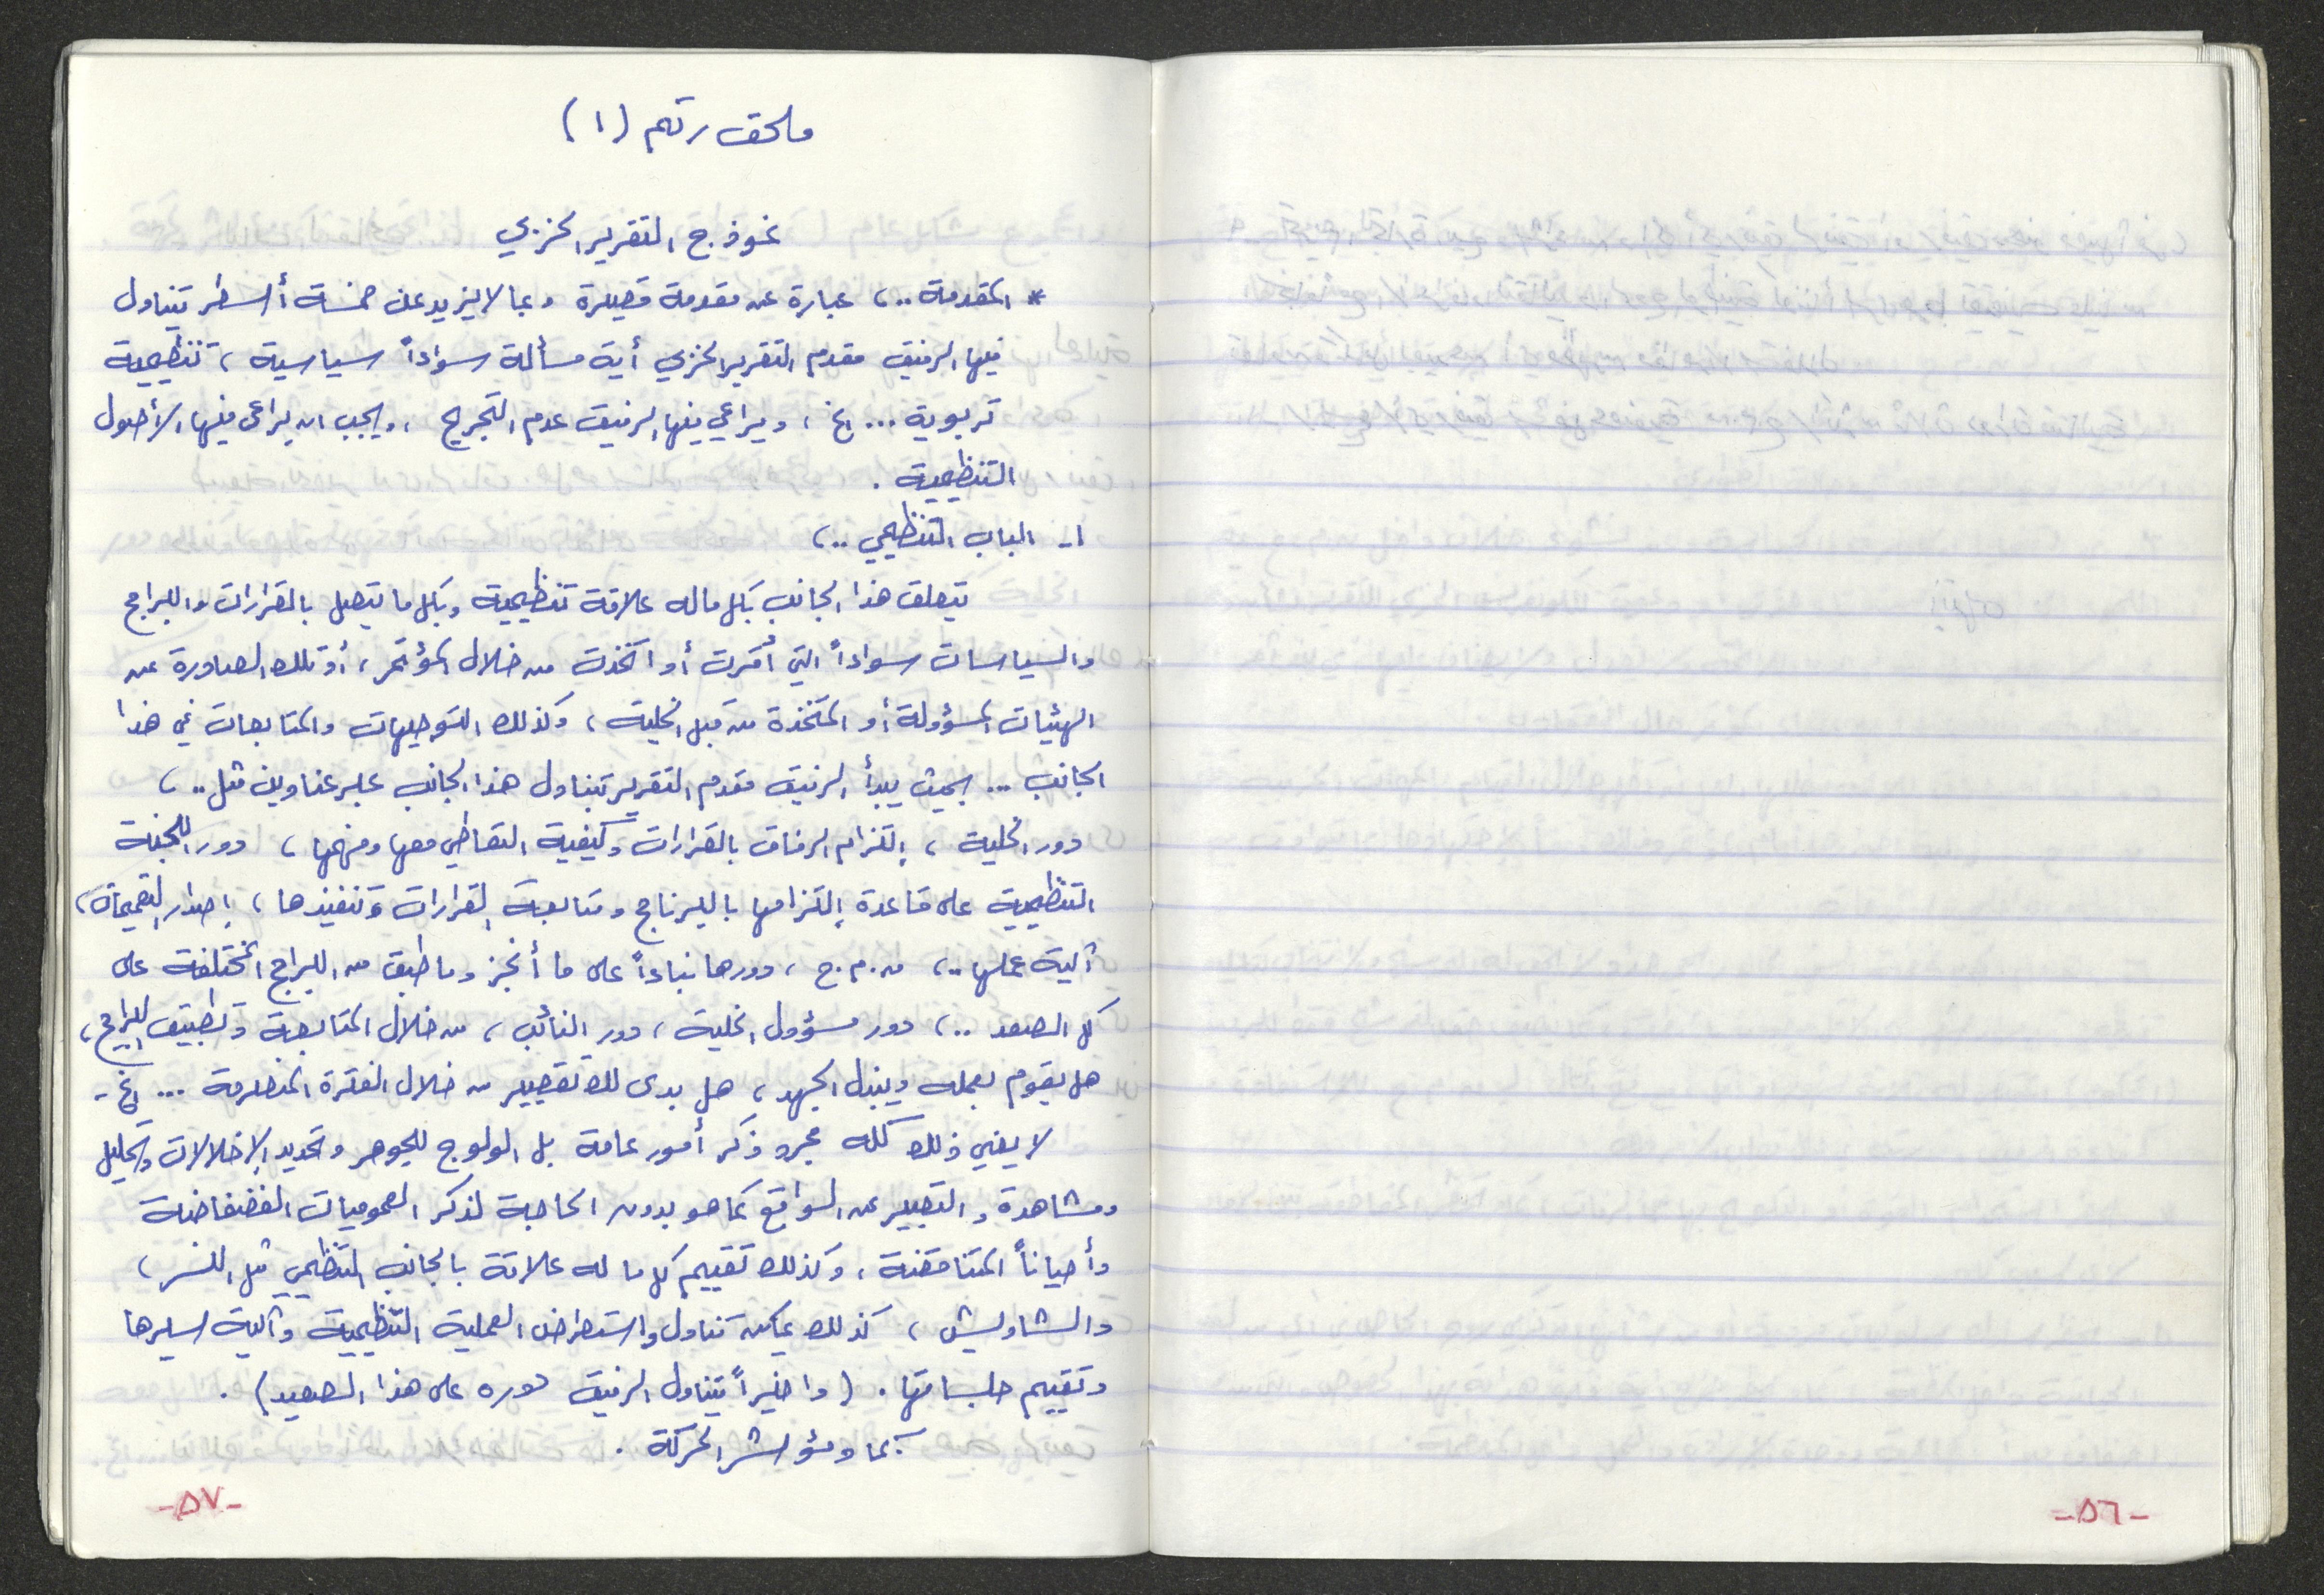 -٥٦-
ملحق رقم (١)
نموذج التقرير الحزبي
* المقدمة ..، عبارة عن مقدمة قصيرة وبما لا يزيد عن خمسة أسطر تتناول
فيها الرفيق مقدم التقرير الحزبي أية مسألة سواءاً سياسية ، تنظيمية
تربوية ... الخ ، ويراعي فيها الرفيق عدم التجريح ، ويجب ان يراعى فيها الأصول
التنظيمية .
١- الباب التنظيمي ..،
يتعلق هذا الجانب بكل ماله علاقة تنظيمية وبكل ما يتصل بالقرارات والبرامج
والسياسات سواءاً التي أقرت أو اتخذت من خلال المؤتمر ، أو تلك الصادرة عن
الهيئات المسؤولة أو المتخذة من قبل الخلية ، وكذلك التوجيهات والمتابعات في هذا
الجانب ... بحيث يبدأ الرفيق مقدم التقرير تناول هذا الجانب عبر عناوين مثل .. ،
دور الخلية ، إلتزام الرفاق بالقرارات وكيفية التعاطي معها وفهمها ، دور اللجنة
التنظيمية على قاعدة إلتزامها بالبرنامج ومتابعة القرارات وتنفيذها ، إصدار التعميمات ،
آلية عملها ..، م.م.ج ، دورها بناءاً على ما أنجز وما طبق من البرامج المختلفة على
كل الصعد ..، دور مسؤول الخلية ، دور النائب ، من خلال المتابعة وتطبيق البرامج ،
هل يقوم بعمله ويبذل الجهد ، هل بدى لك تقصير من خلال الفترة المنصرمة ... الخ -
لا يعني ذلك كله مجرد ذكر أمور عامة بل الولوج للجوهر وتحديد الإخلالات وتحليل
ومشاهدة والتعبير عن الواقع كما هو بدون الحاجة لذكر العموميات الفضفاضة
وأحياناً المتناقضة ، وكذلك تقييم كل ما له علاقة بالجانب التنظيمي مثل النسر ،
والشاويش ، كذلك يمكن تناول واستعراض العملية التنظيمية وآلية سيرها
وتقييم جلساتها . (وأخيراً يتناول الرفيق دوره على هذا الصعيد) .
كما ومؤشر الحركة .
-٥٧-